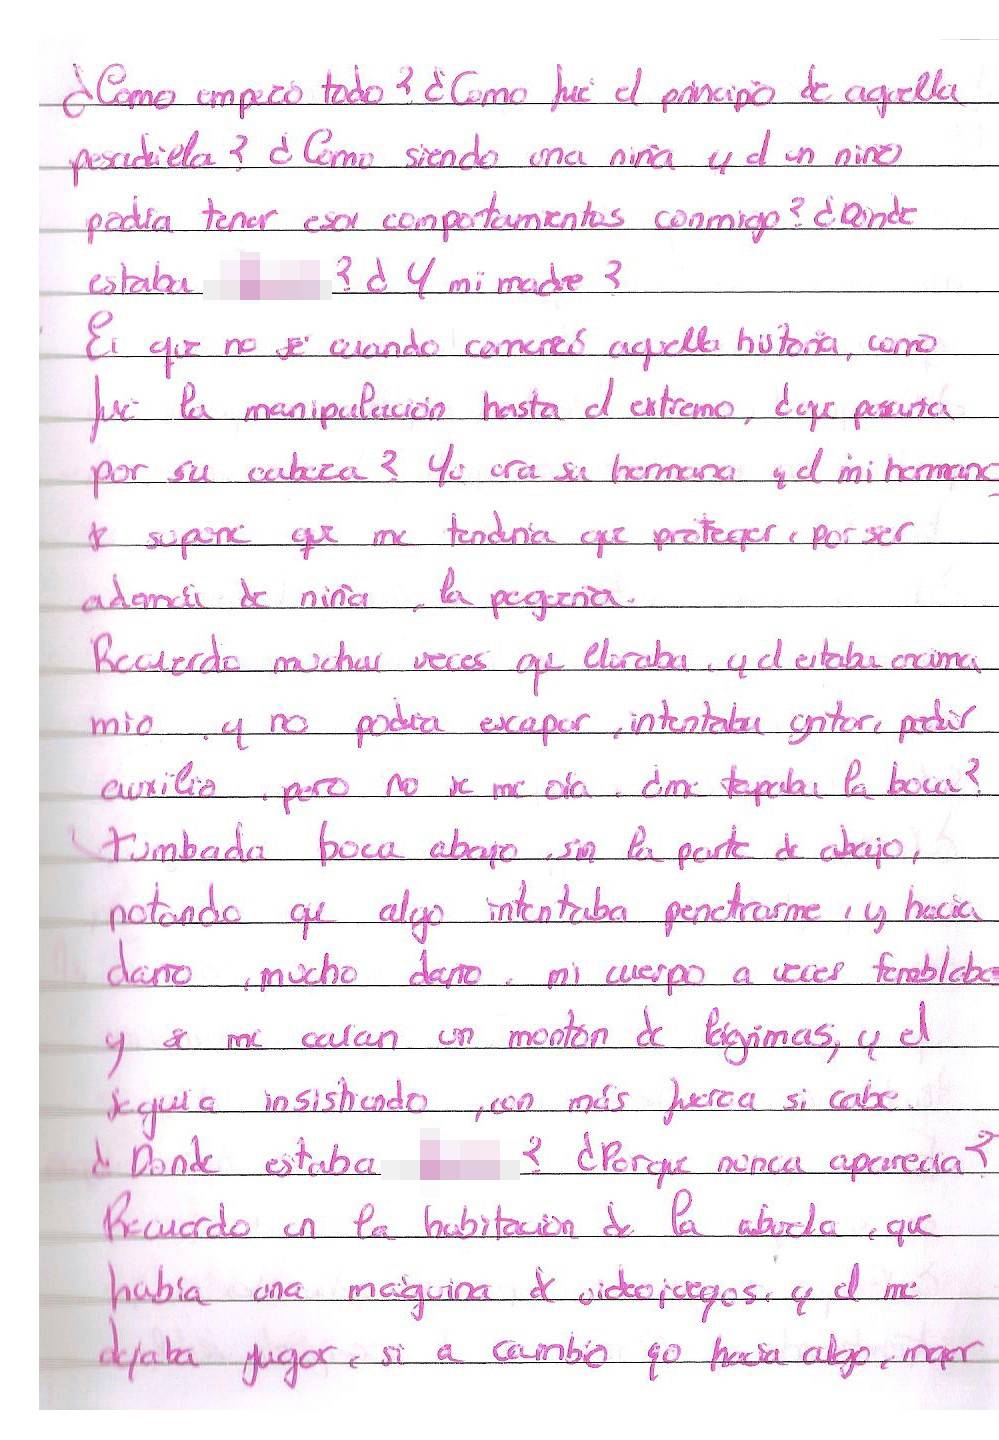 ¿Como empezó todo? ¿Como fue el principio de aquella
pesadiela? ¿Como siendo una niña y el un niño
podia tener esos comportamientos conmigo? ¿Donde
estaba ? ¿Y mi madre?
Es que no se cuando comenzó aquella historia, como
fue la manipulación hasta el extremo, ¿que pasaria
por su cabeza? Yo era su hermana y el mi hermano
se supone que me tendria que proteger, por ser
además de niña, la pequeña.
Recuerdo muchas veces que lloraba, y el estaba encima
mio, y no podia escapar, intentaba gritar, pedir
auxilio, pero no se me oía. ¿me tapaba la boca?
Tumbada boca abajo, sin la parte de abajo,
notando que algo intentaba penetrarme, y hacia
daño, mucho daño. mi cuerpo a veces temblaba
y se me caían un montón de lágrimas, y el
seguia insistiendo, con más fuerza si cabe.
¿Donde estaba ? ¿Porque nunca aparecia?
Recuerdo en la habitación de la abuela, que
habia una máquina de videojuegos, y el me
dejaba jugar, si a cambio yo hacia algo, mejor